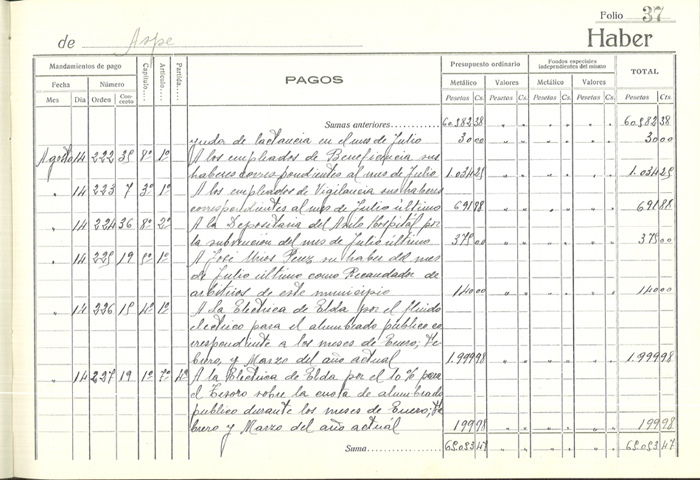 Folio 37
de Aspe Haber
Mandamientos de pago Capítulo Artículo Partida PAGOS Presupuesto ordinario Fondos especiales independientes del mismo TOTAL
Fecha Número Metálico Valores Metálico Valores
Mes Día Orden Concepto Pesetas Cs. Pesetas Cs. Pesetas Cs. Pesetas Cs. Pesetas Cts.
Sumas anteriores 60.982 38 " " " " " " 60.982 38
yuda de lactancia en el mes de Julio 30 00 " " " " " " 30 00
Agosto 14 222 35 8º 1º A los empleados de Beneficencia sus
haberes correspondientes al mes de Julio 1.034 25 " " " " " " 1.034 25
" 14 223 7 3º 1º A los empleados de Vigilancia sus haberes
correspondientes al mes de Julio último 691 88 " " " " " " 691 88
" 14 224 36 8º 2º A la Depositaria del Asilo Hospital por
la subvencion del mes de Julio último 375 00 " " " " " " 375 00
" 14 225 19 5º 1º A José Mios Perez su haber del mes
de Julio último como Recaudador de
arbitrios de este municipio 140 00 " " " " " " 140 00
" 14 226 15 4º 1º A la Electrica de Elda por el fluido
electrico para el alumbrado público co
rrespondiente a los meses de Enero; Fe
brero, y Marzo del año actual 1.999 98 " " " " " " 1.999 98
" 14 237 19 1º 7º 4º A la Electrica de Elda por el 10 % para
el Tesoro sobre la cuota de alumbrado
público durante los meses de Enero; Fe
brero y Marzo del año actual 199 98 " " " " " " 199 98
Suma 65.053 47 " " " " " " 65.053 47